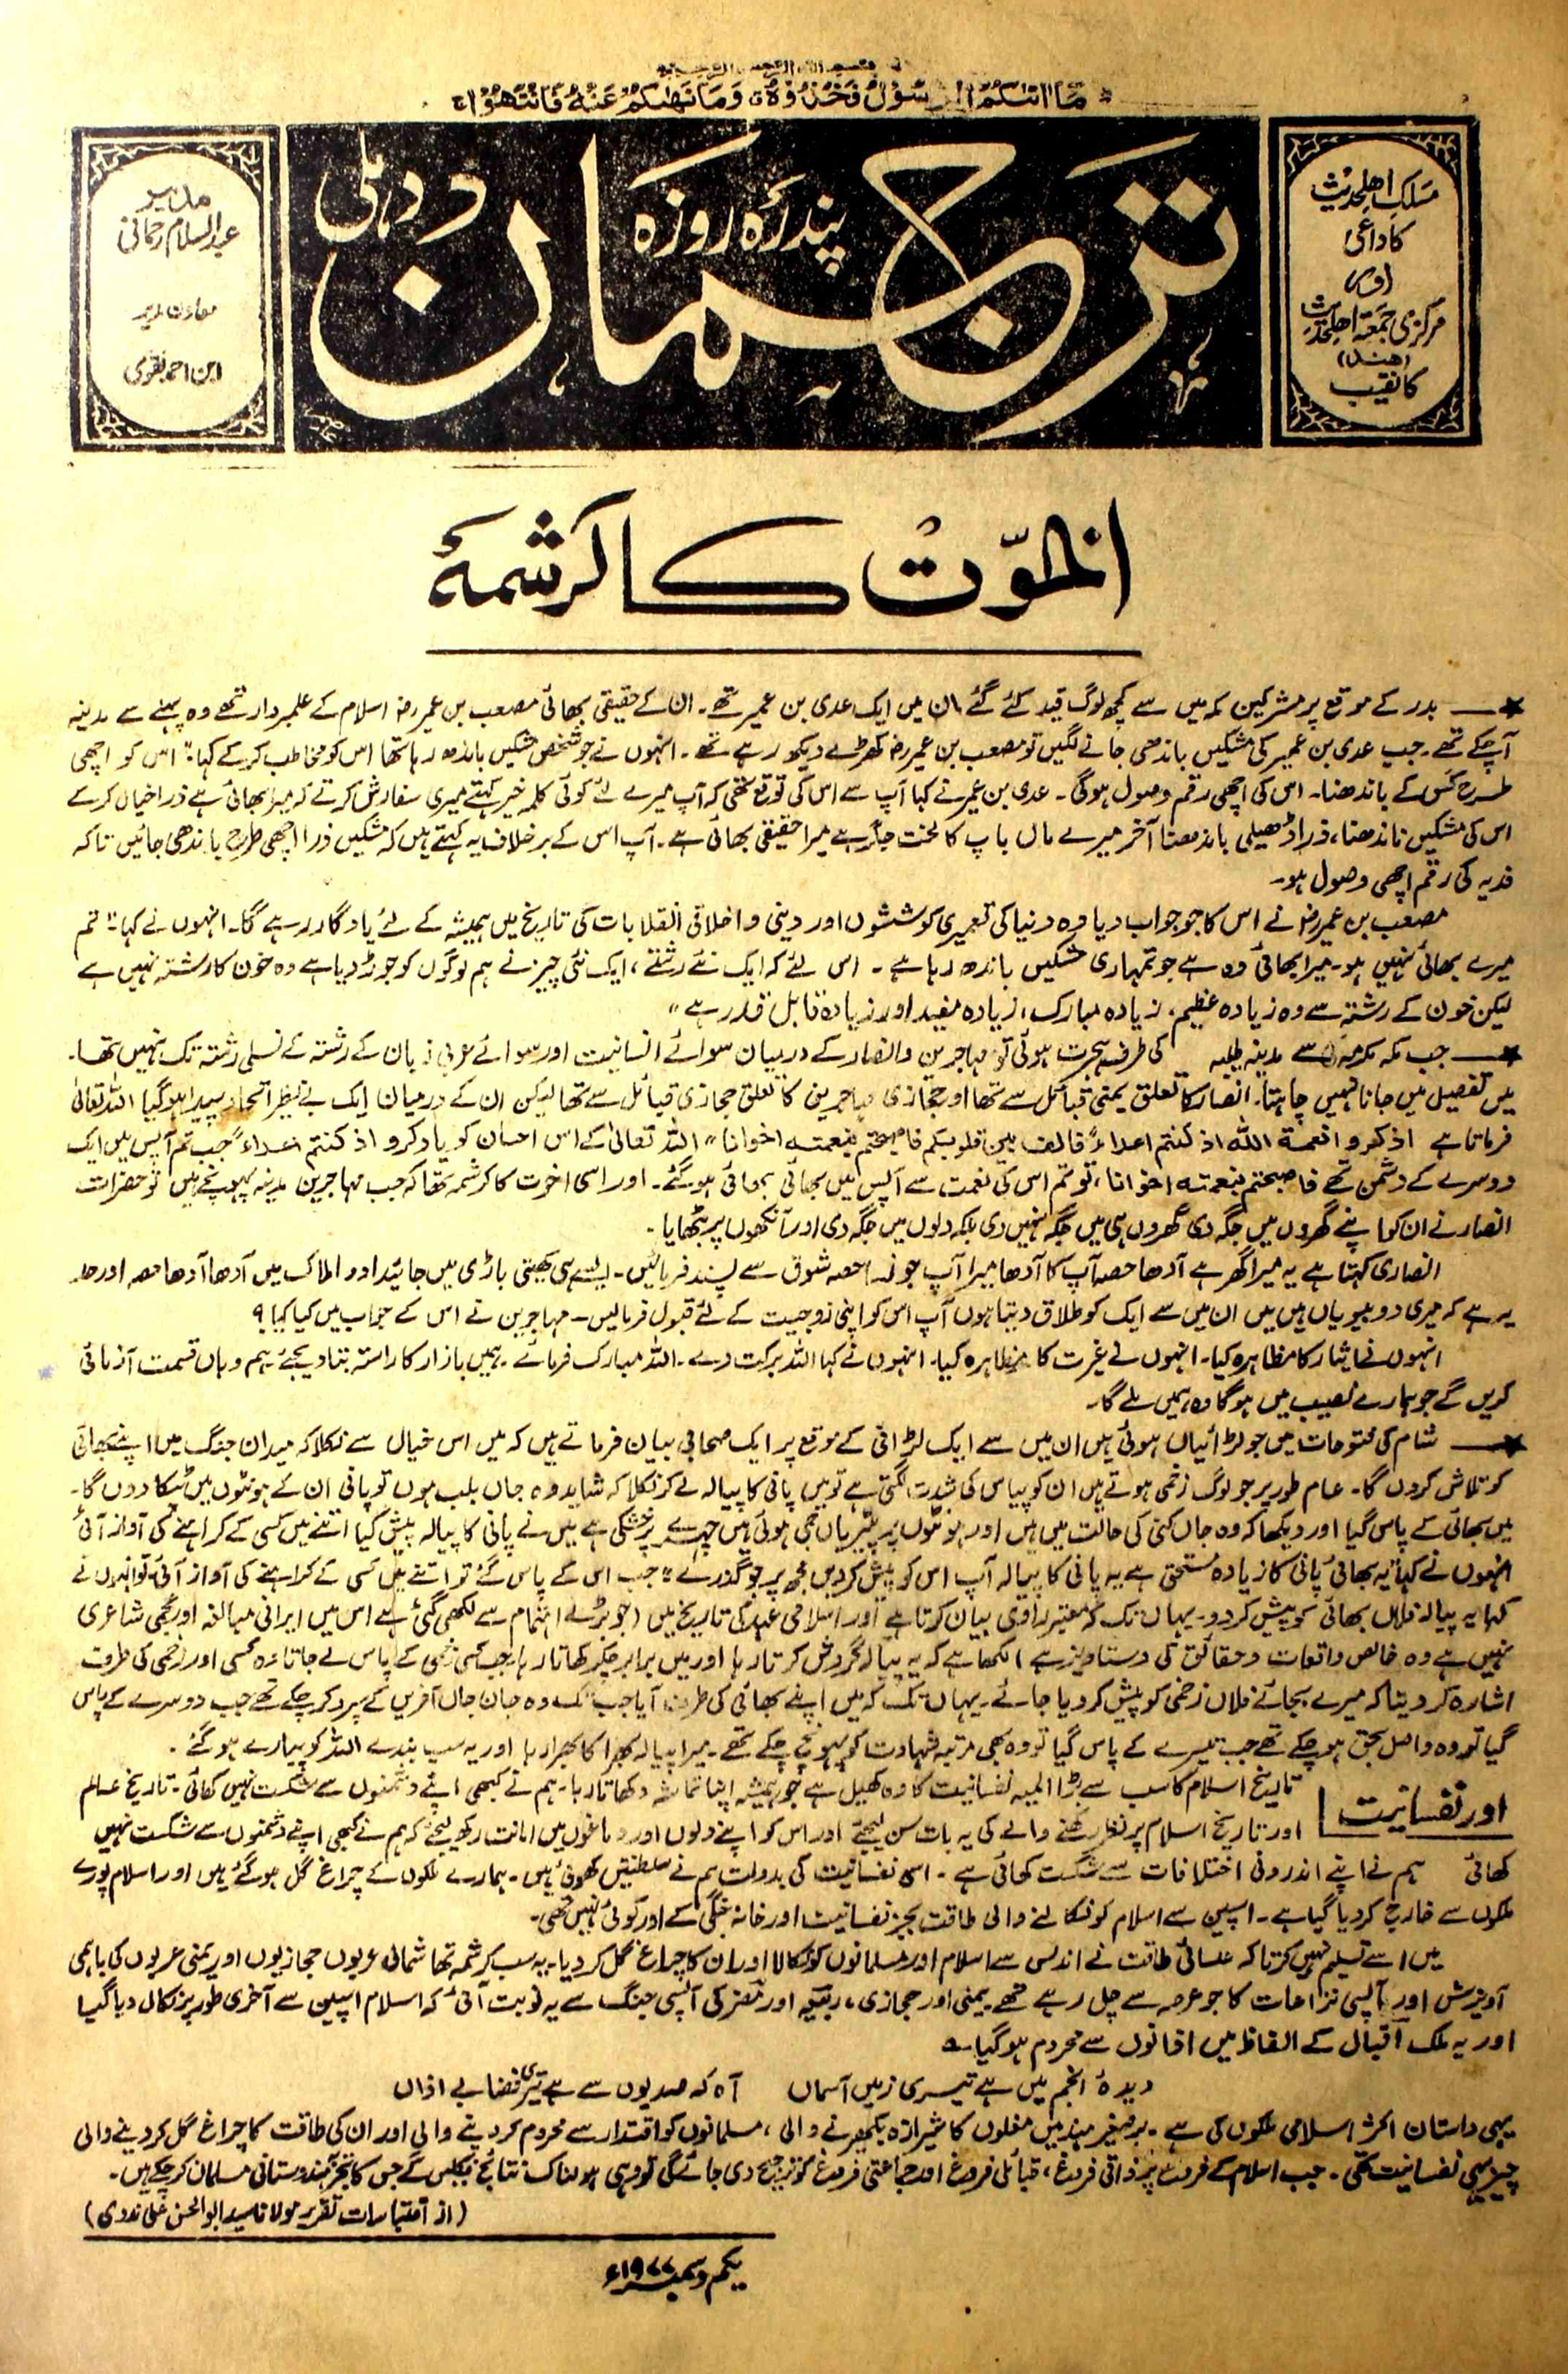 بسم اللہ الرحمن الرحیم
مَا اٰتٰىكُمُ الرَّسُوْلُ فَخُذُوْهُ وَمَا نَهٰىكُمْ عَنْهُ فَانْتَهُوْا
مسلک اھلحدیث
کا داعی
اور
مرکزی جمعیۃ اھلحدیث
(ھند)
کا نقیب
ترجمان
پندرہ روزہ
دہلی
مدیر
عبدالسلام رحمانی
معاون مدیر
ابن احمد نقوی
اخوّت کا کرشمہ
★— بدر کے موقع پر مشرکین مکہ میں سے کچھ لوگ قید کئے گئے ان میں ایک عدی بن عمیر تھے۔ ان کے حقیقی بھائی مصعب بن عمیررضہ اسلام کے علمبردار تھے وہ پہلے سے مدینہ
آچکے تھے۔ جب عدی بن عمیر کی مشکیں باندھی جانے لگیں تو مصعب بن عمیررضہ کھڑے دیکھ رہے تھے۔ انہوں نے جو شخص مشکیں باندھ رہا تھا اس کو مخاطب کرکے کہا: "اس کو اچھی
طرح کس کے باندھنا۔ اس کی اچھی رقم وصول ہوگی۔ عدی بن عمیر نے کہا آپ سے اس کی توقع تھی کہ آپ میرے لئے کوئی کلمہ خیر کہتے میری سفارش کرتے کہ میرا بھائی ہے ذرا خیال کرکے
اس کی مشکیں باندھنا، ذرا ڈھیلی باندھنا آخر میرے ماں باپ کا لخت جگر ہے میرا حقیقی بھائی ہے۔ آپ اس کے برخلاف یہ کہتے ہیں کہ مشکیں ذرا اچھی طرح باندھی جائیں تاکہ
فدیہ کی رقم اچھی وصول ہو۔
مصعب بن عمیررضہ نے اس کا جو جواب دیا وہ دنیا کی تعمیری کوششوں اور دینی و اخلاقی انقلابات کی تاریخ میں ہمیشہ کے لئے یادگار رہے گا۔ انہوں نے کہا: "تم
میرے بھائی نہیں ہو۔ میرا بھائی وہ ہے جو تمہاری مشکیں باندھ رہا ہے۔ اس لئے کہ ایک نئے رشتے، ایک نئی چیز نے ہم لوگوں کو جوڑ دیا ہے وہ خون کا رشتہ نہیں ہے
لیکن خون کے رشتہ سے وہ زیادہ عظیم، زیادہ مبارک، زیادہ مفید اور زیادہ قابل قدر ہے"
★— جب مکہ مکرمہ سے مدینہ طیبہ کی طرف ہجرت ہوئی تو مہاجرین و انصار کے درمیان سوائے انسانیت اور سوائے عربی زبان کے رشتہ کے نسلی رشتہ تک نہیں تھا۔
میں تفصیل میں جانا نہیں چاہتا۔ انصار کا تعلق یمنی قبائل سے تھا اور حجازی مہاجرین کا تعلق حجازی قبائل سے تھا لیکن ان کے درمیان ایک بے نظیر اتحاد پیدا ہوگیا اللہ تعالیٰ
فرماتا ہے اذکروا نعمۃ اللہ اذ کنتم اعداءً فالف بین قلوبکم فاصبحتم بنعمتہ اخوانا" اللہ تعالیٰ کے اس احسان کو یاد کرو اذ کنتم اعداء جب تم آپس میں ایک
دوسرے کے دشمن تھے فاصبحتم بنعمتہ اخوانا، تو تم اس کی نعمت سے آپس میں بھائی بھائی ہوگئے۔ اور اسی اخوت کا کرشمہ تھا کہ جب مہاجرین مدینہ پہونچے ہیں تو حضرات
انصار نے ان کو اپنے گھروں میں جگہ دی گھروں ہی میں جگہ نہیں دی بلکہ دلوں میں جگہ دی اور آنکھوں پر بٹھایا۔
انصاری کہتا ہے یہ میرا گھر ہے آدھا حصہ آپ کا آدھا میرا آپ جونسا حصہ شوق سے پسند فرمالیں۔ ایسے ہی کھیتی باڑی میں جائیداد اور املاک میں آدھا آدھا حصہ اور حد
یہ ہے کہ میری دو بیویاں ہیں میں ان میں سے ایک کو طلاق دیتا ہوں آپ اس کو اپنی زوجیت کے لئے قبول فرمالیں۔ مہاجرین نے اس کے جواب میں کیا کیا؟
انہوں نے ایثار کا مظاہرہ کیا۔ انہوں نے غیرت کا مظاہرہ کیا۔ انہوں نے کہا اللہ برکت دے۔ اللہ مبارک فرمائے۔ ہمیں بازار کا راستہ بتا دیجئے ہم وہاں قسمت آزمائی
کریں گے جو ہمارے نصیب میں ہوگا وہ ہمیں ملے گا۔
★— شام کی فتوحات میں جو لڑائیاں ہوئی ہیں ان میں سے ایک لڑائی کے موقع پر ایک صحابی بیان فرماتے ہیں کہ میں اس خیال سے نکلا کہ میدان جنگ میں اپنے بھائی
کو تلاش کروں گا۔ عام طور پر جو لوگ زخمی ہوتے ہیں ان کو پیاس کی شدت لگتی ہے تو میں پانی کا پیالہ لے کر نکلا کہ شاید وہ جاں بلب ہوں تو پانی ان کے ہونٹوں میں ٹپکا دوں گا۔
میں بھائی کے پاس گیا اور دیکھا کہ وہ جاں کنی کی حالت میں ہیں اور ہونٹوں پر پپڑیاں جمی ہوئی ہیں چہرے پر خشکی ہے میں نے پانی کا پیالہ پیش کیا اتنے میں کسی کے کراہنے کی آواز آئی
انہوں نے کہا: یہ بھائی پانی کا زیادہ مستحق ہے یہ پانی کا پیالہ آپ اس کو پیش کردیں مجھ پر جو گذرے" جب اس کے پاس گئے تو اتنے میں کسی کے کراہنے کی آواز آئی تو انہوں نے
کہا یہ پیالہ فلاں بھائی کو پیش کردو۔ یہاں تک کہ معتبر راوی بیان کرتا ہے اور اسلامی عہد کی تاریخ میں (جو بڑے اہتمام سے لکھی گئی ہے اس میں ایرانی مبالغہ اور عجمی شاعری
نہیں ہے وہ خالص واقعات و حقائق کی دستاویز ہے) لکھا ہے کہ یہ پیالہ گردش کرتا رہا اور میں برابر چکر کھاتا رہا جب کسی زخمی کے پاس لے جاتا وہ کسی اور زخمی کی طرف
اشارہ کردیتا کہ میرے بجائے فلاں زخمی کو پیش کردیا جائے۔ یہاں تک کہ میں اپنے بھائی کی طرف آیا جب تک وہ جان جاں آفریں کے سپرد کرچکے تھے جب دوسرے کے پاس
گیا تو وہ واصل بحق ہوچکے تھے جب تیسرے کے پاس گیا تو وہ بھی مرتبہ شہادت کو پہونچ چکے تھے۔ میرا پیالہ بھرا کا بھرا رہا اور یہ سب بندے اللہ کو پیارے ہوگئے۔
اور نفسانیت
تاریخ اسلام کا سب سے بڑا المیہ نفسانیت کا وہ کھیل ہے جو ہمیشہ اپنا تماشہ دکھاتا رہا۔ ہم نے کبھی اپنے دشمنوں سے شکست نہیں کھائی۔ تاریخ عالم
اور تاریخ اسلام پر نظر رکھنے والے کی یہ بات سن لیجئے اور اس کو اپنے دلوں اور دماغوں میں امانت رکھ لیجئے کہ ہم نے کبھی اپنے دشمنوں سے شکست نہیں
کھائی ہم نے اپنے اندرونی اختلافات سے شکست کھائی ہے۔ اسی نفسانیت کی بدولت ہم نے سلطنتیں کھوئی ہیں۔ ہمارے ملکوں کے چراغ گل ہوگئے ہیں اور اسلام پورے
ملکوں سے خارج کردیا گیا ہے۔ اسپین سے اسلام کو نکالنے والی طاقت بجز نفسانیت اور خانہ جنگی کے اور کوئی نہیں تھی۔
میں اسے تسلیم نہیں کرتا کہ عیسائی طاقت نے اندلس سے اسلام اور مسلمانوں کو نکالا اور ان کا چراغ گل کردیا۔ یہ سب کرشمہ تھا شمالی عربوں حجازیوں اور یمنی عربوں کی باہمی
آویزش اور آپسی نزاعات کا جو عرصہ سے چل رہے تھے یمنی اور حجازی، ربیعہ اور مُضر کی آپسی جنگ سے یہ نوبت آئی کہ اسلام اسپین سے آخری طور پر نکال دیا گیا
اور یہ ملک اقبال کے الفاظ میں اذانوں سے محروم ہوگیا ؎
دیدۂ انجم میں ہے تیری زمیں آسماں آہ کہ صدیوں سے ہے تیری فضا بے اذاں
یہی داستان اکثر اسلامی ملکوں کی ہے۔ برصغیر ہند میں مغلوں کا شیرازہ بکھیرنے والی، مسلمانوں کو اقتدار سے محروم کردینے والی اور ان کی طاقت کا چراغ گل کردینے والی
چیز یہی نفسانیت تھی۔ جب اسلام کے فروغ پر ذاتی فروغ، قبائلی فروغ اور جماعتی فروغ کو ترجیح دی جائے گی تو وہی ہولناک نتائج نکلیں گے جس کا تجربہ ہندوستانی مسلمان کرچکے ہیں۔
(از اقتباسات تقریر مولانا سید ابوالحسن علی ندوی)
یکم دسمبر ۱۹۷۷ء